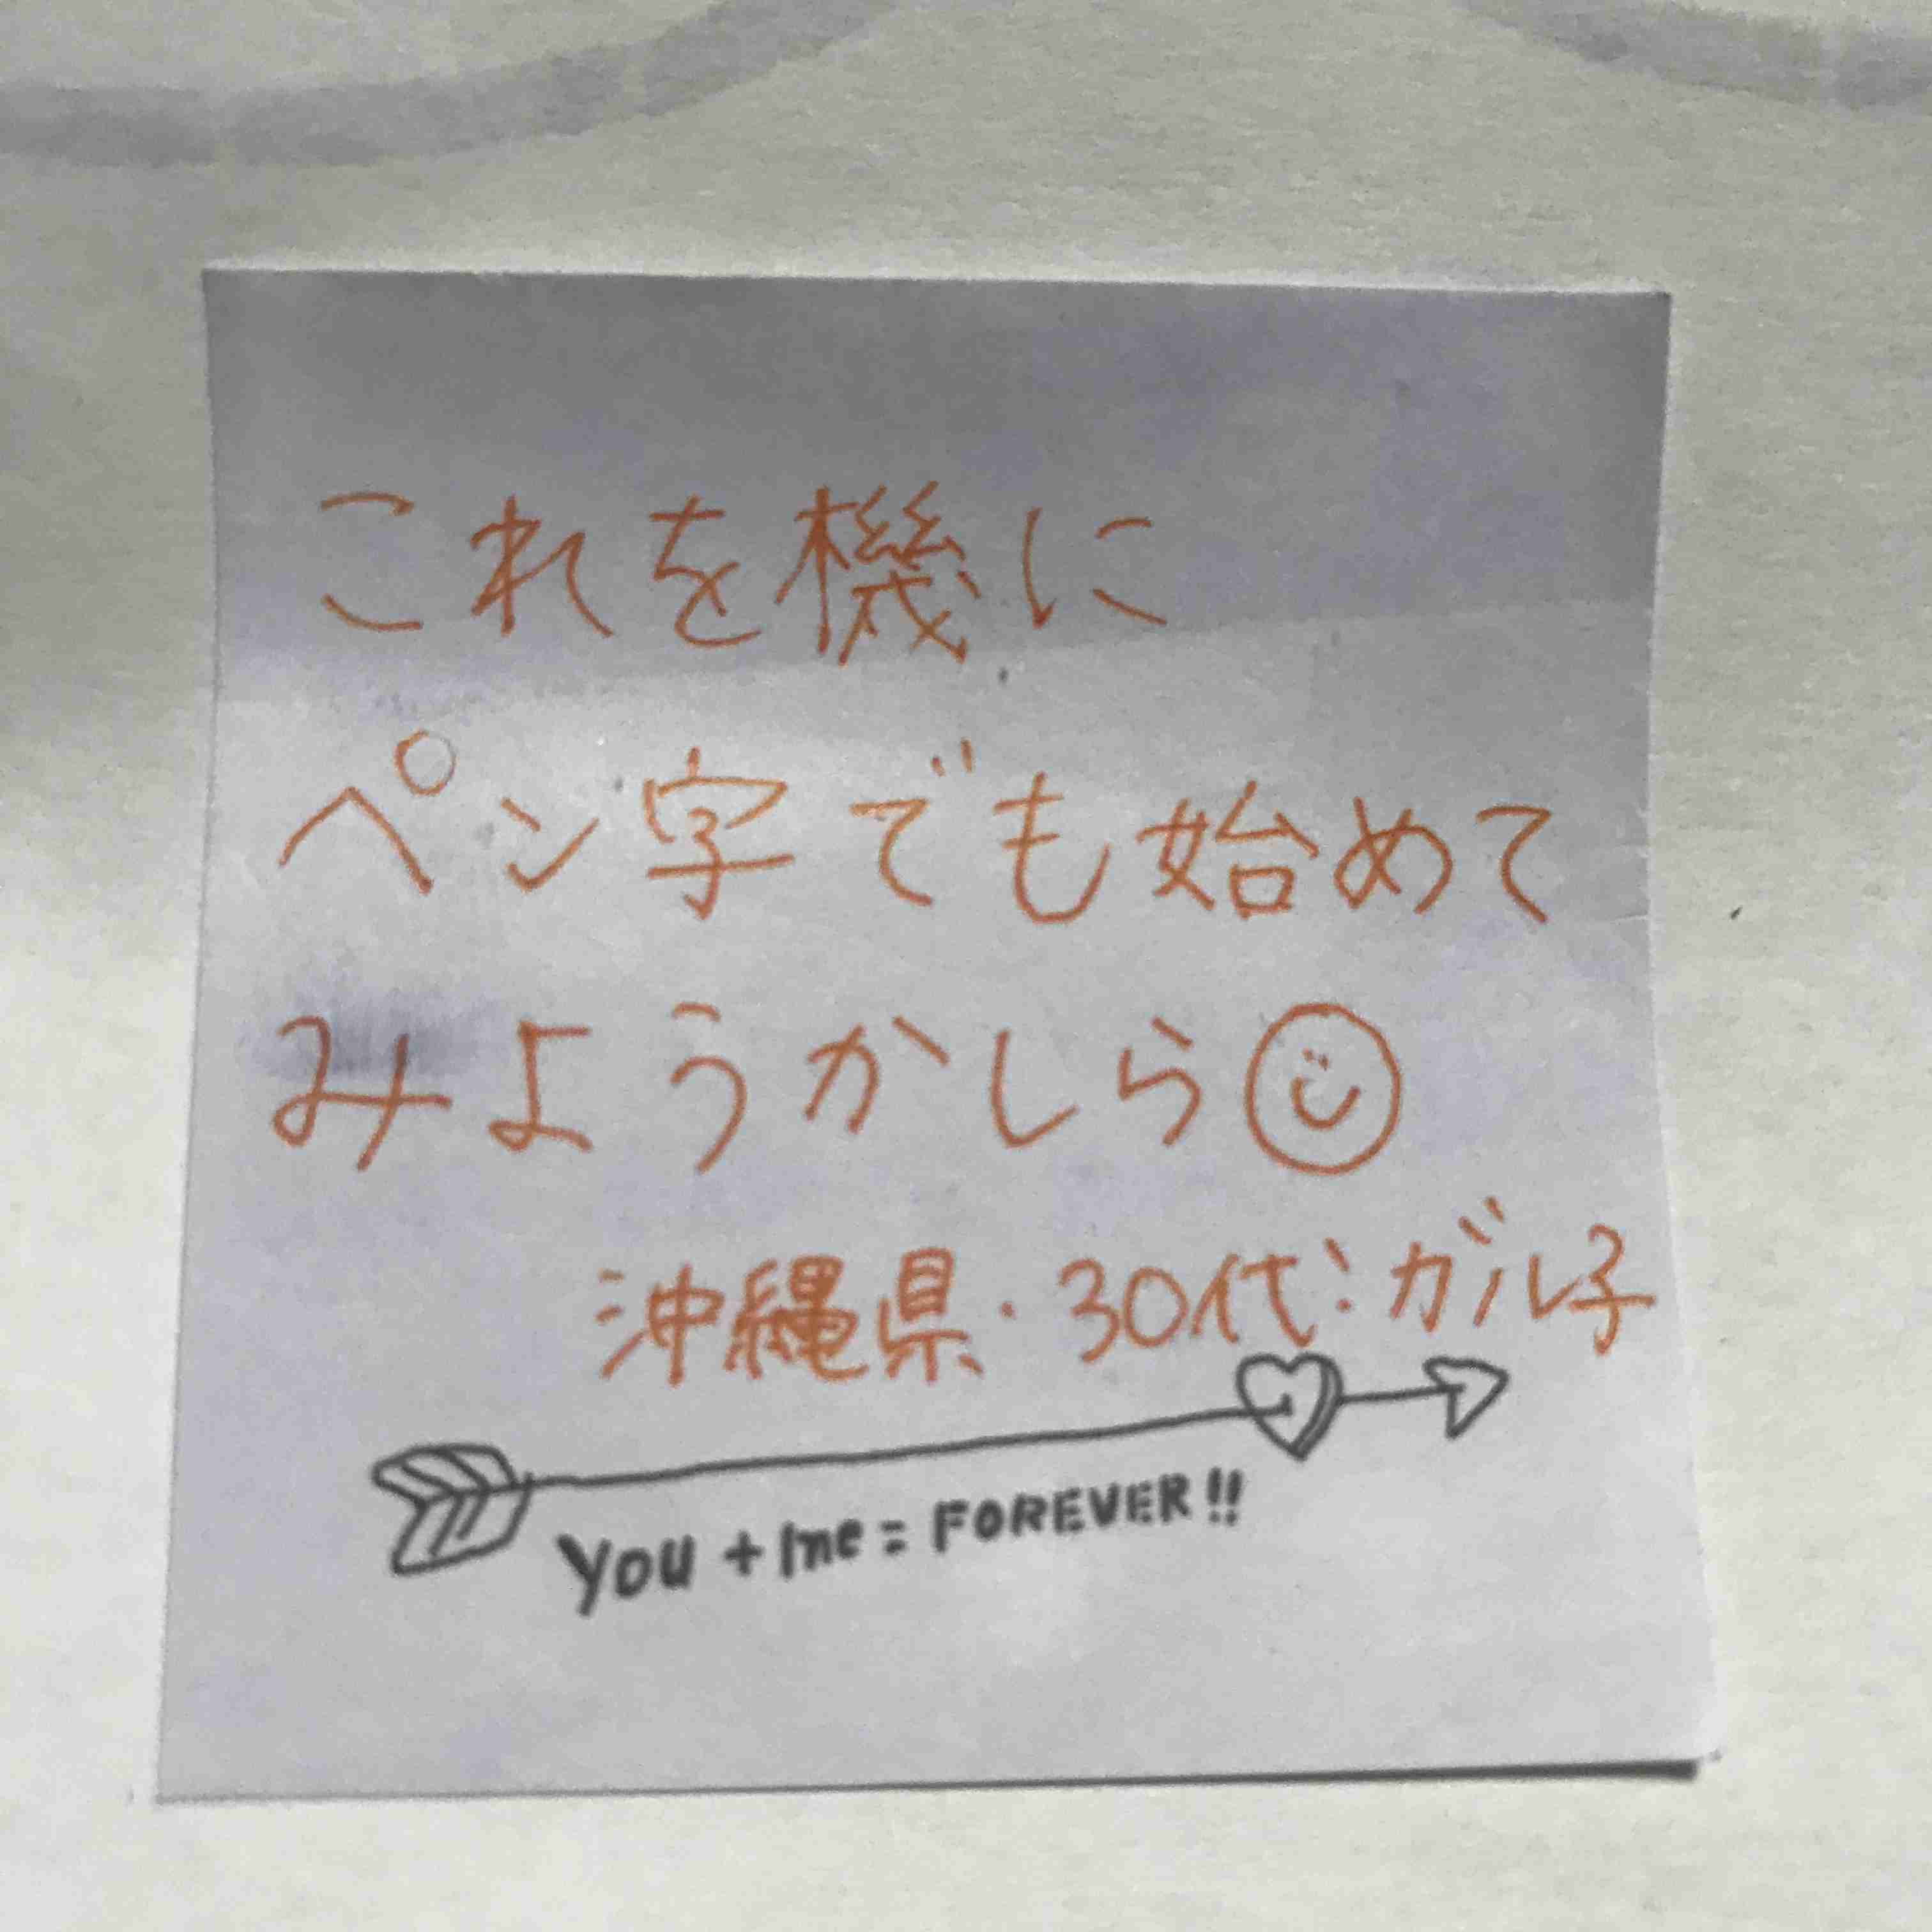 これを機に
ペン字でも始めて
みようかしら
沖縄県・30代：ガル子
You + me = FOREVER!!